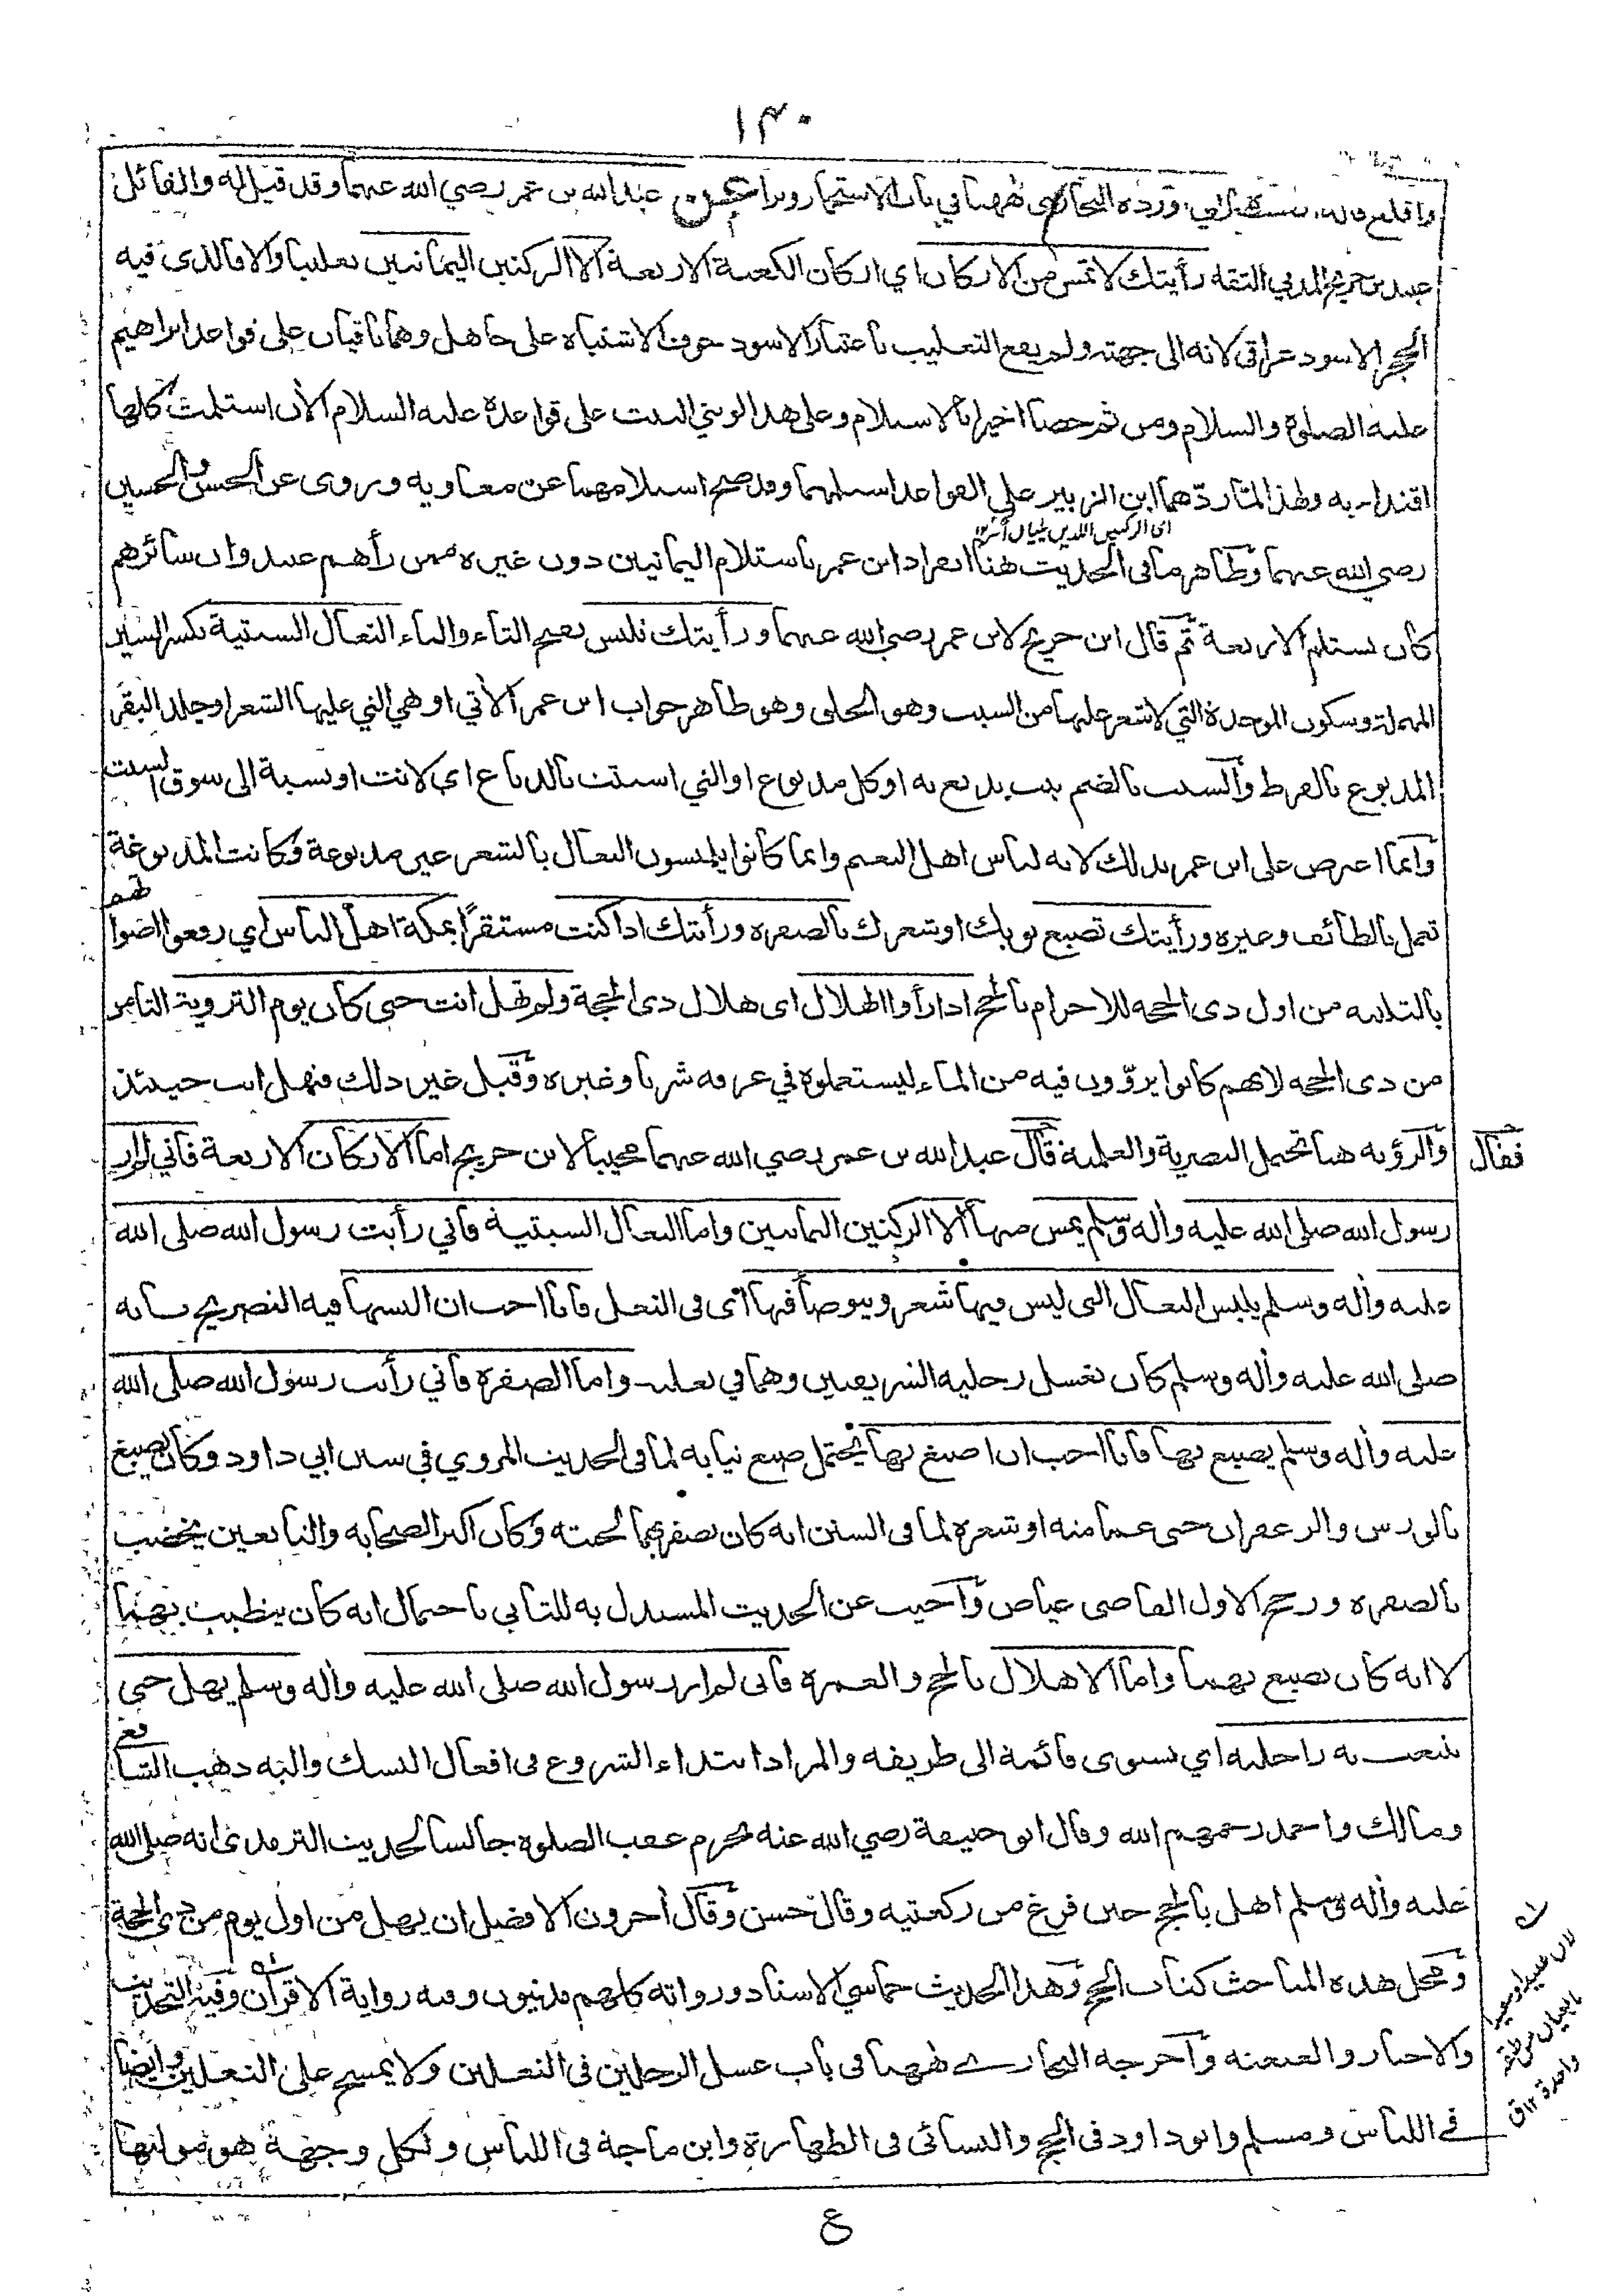 ١٣٠
البخاري ههنا في باب الاستجمار وترا عن عبد الله بن عمر رضي الله عنهما وقد قيل له والقائل
عبيد بن جريج المدني الثقة رأيتك لا تمس من الاركان اي اركان الكعبة الاربعة الا الركنين اليمانيين تغليبا والا فالذي فيه
الحجر الاسود عراقي لانه الى جهته ولم يقع التغليب باعتبار الاسود خوف الاشتباه على جاهل وهما باقيان على قواعد ابراهيم
عليه الصلوة والسلام ومن ثم خصا اخيرا بالاستلام وعلى هذا لو بني البيت على قواعده عليه السلام الآن استلمت كلها
اقتداء به ولهذا لما ردّهما ابن الزبير على القواعد استلمهما وقد صح استلامهما عن معاوية وروى عن الحسن والحسين
اى الركنين اللذين يليان
رضي الله عنهما وظاهر ما في الحديث هنا انفراد ابن عمر باستلام اليمانيين دون غيره ممن رأهم عبيد وان سائرهم
كان يستلم الاربعة ثم قال ابن جريج لابن عمر رضي الله عنهما ورأيتك تلبس بفتح التاء والباء النعال السبتية بكسر السين
المهملة وسكون الموحدة التي لا شعر عليها من السبت وهو الحلق وهو ظاهر جواب ابن عمر الآتي او هي التي عليها الشعر او جلد البقر
المدبوغ بالقرظ والسبت بالضم نبت يدبغ به او كل مدبوغ او التي اسبتت بالدباغ اي لانت او نسبة الى سوق السبت
وانما اعترض على ابن عمر بذلك لانه لباس اهل النعيم وانما كانوا يلبسون النعال بالشعر غير مدبوغة وكانت المدبوغة
تعمل بالطائف وغيره ورأيتك تصبغ ثوبك او شعرك بالصفرة ورأيتك اذا كنت مستقرًا بمكة اهل الناس اي رفعوا اصواتهم
بالتلبية من اول ذي الحجة للاحرام بالحج اذا رأوا الهلال اى هلال ذي الحجة ولم تهل انت حتى كان يوم التروية الثامن
من ذي الحجة لانهم كانوا يروّون فيه من الماء ليستعملوه في عرفة شربا وغيره وقيل غير ذلك فتهل انت حينئذ
والرؤية هنا تحتمل البصرية والعلمية فقال عبد الله بن عمر رضي الله عنهما مجيبا لابن جريج اما الاركان الاربعة فاني لم ار
فقال
رسول الله صلى الله عليه وآله وسلم يمس منها الا الركنين اليمانيين واما النعال السبتية فاني رأيت رسول الله صلى الله
عليه وآله وسلم يلبس النعال التي ليس فيها شعر ويتوضأ فيها اي في النعل فانا احب ان البسها فيه التصريح بانه
صلى الله عليه وآله وسلم كان يغسل رجليه الشريفين وهما في نعليه واما الصفرة فاني رأيت رسول الله صلى الله
عليه وآله وسلم يصبغ بها فانا احب ان اصبغ بها يحتمل صبغ ثيابه لما في الحديث المروي في سنن ابي داود وكان يصبغ
بالورس والزعفران حتى عمامته او شعره لما في السنن انه كان يصفر بهما لحيته وكان اكثر الصحابة والتابعين يخضب
بالصفرة ورجح الاول القاضي عياض واجيب عن الحديث المستدل به للثاني باحتمال انه كان يتطيب بهما
لا انه كان يصبغ بهما واما الاهلال بالحج والعمرة فاني لم ار رسول الله صلى الله عليه وآله وسلم يهل حتى
تنبعث به راحلته اي تستوي قائمة الى طريقه والمراد ابتداء الشروع في افعال النسك واليه ذهب الشافعي
ومالك واحمد رحمهم الله وقال ابو حنيفة رضي الله عنه يحرم عقب الصلوة جالسا لحديث الترمذي انه صلى الله
عليه وآله وسلم اهل بالحج حين فرغ من ركعتيه وقال حسن وقال آخرون الافضل ان يهل من اول يوم من ذي الحجة
ومحل هذه المباحث كتاب الحج وهذا الحديث خماسي الاسناد ورواته كلهم مدنيون وفيه رواية الاقران وفيه التحديث
والاخبار والعنعنة واخرجه البخاري ههنا في باب غسل الرجلين في النعلين ولا يمسح على النعلين وايضا
في اللباس ومسلم وابو داود في الحج والنسائي في الطهارة وابن ماجة في اللباس ولكل وجهة هو موليها
لان عبيدا وسعيدا
تابعيان من طبقة
واحدة ١٢ ق
ع